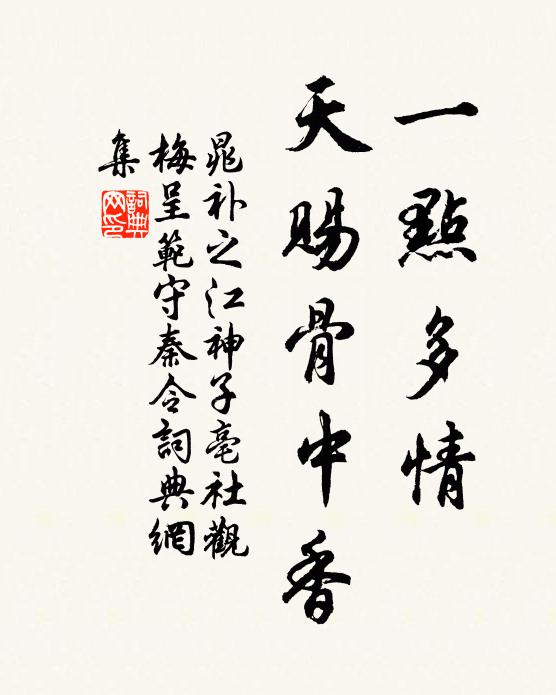 一點多情
天賜骨中香
晁补之江神子亳社觀
梅呈範守秦令詞典網
集
詞典
网印